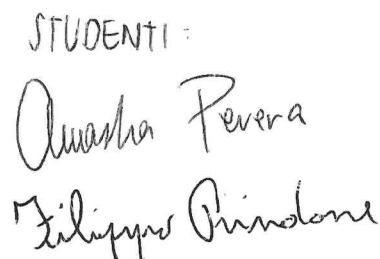 STUDENTI:
Amasha Perera
Filippo Prindone